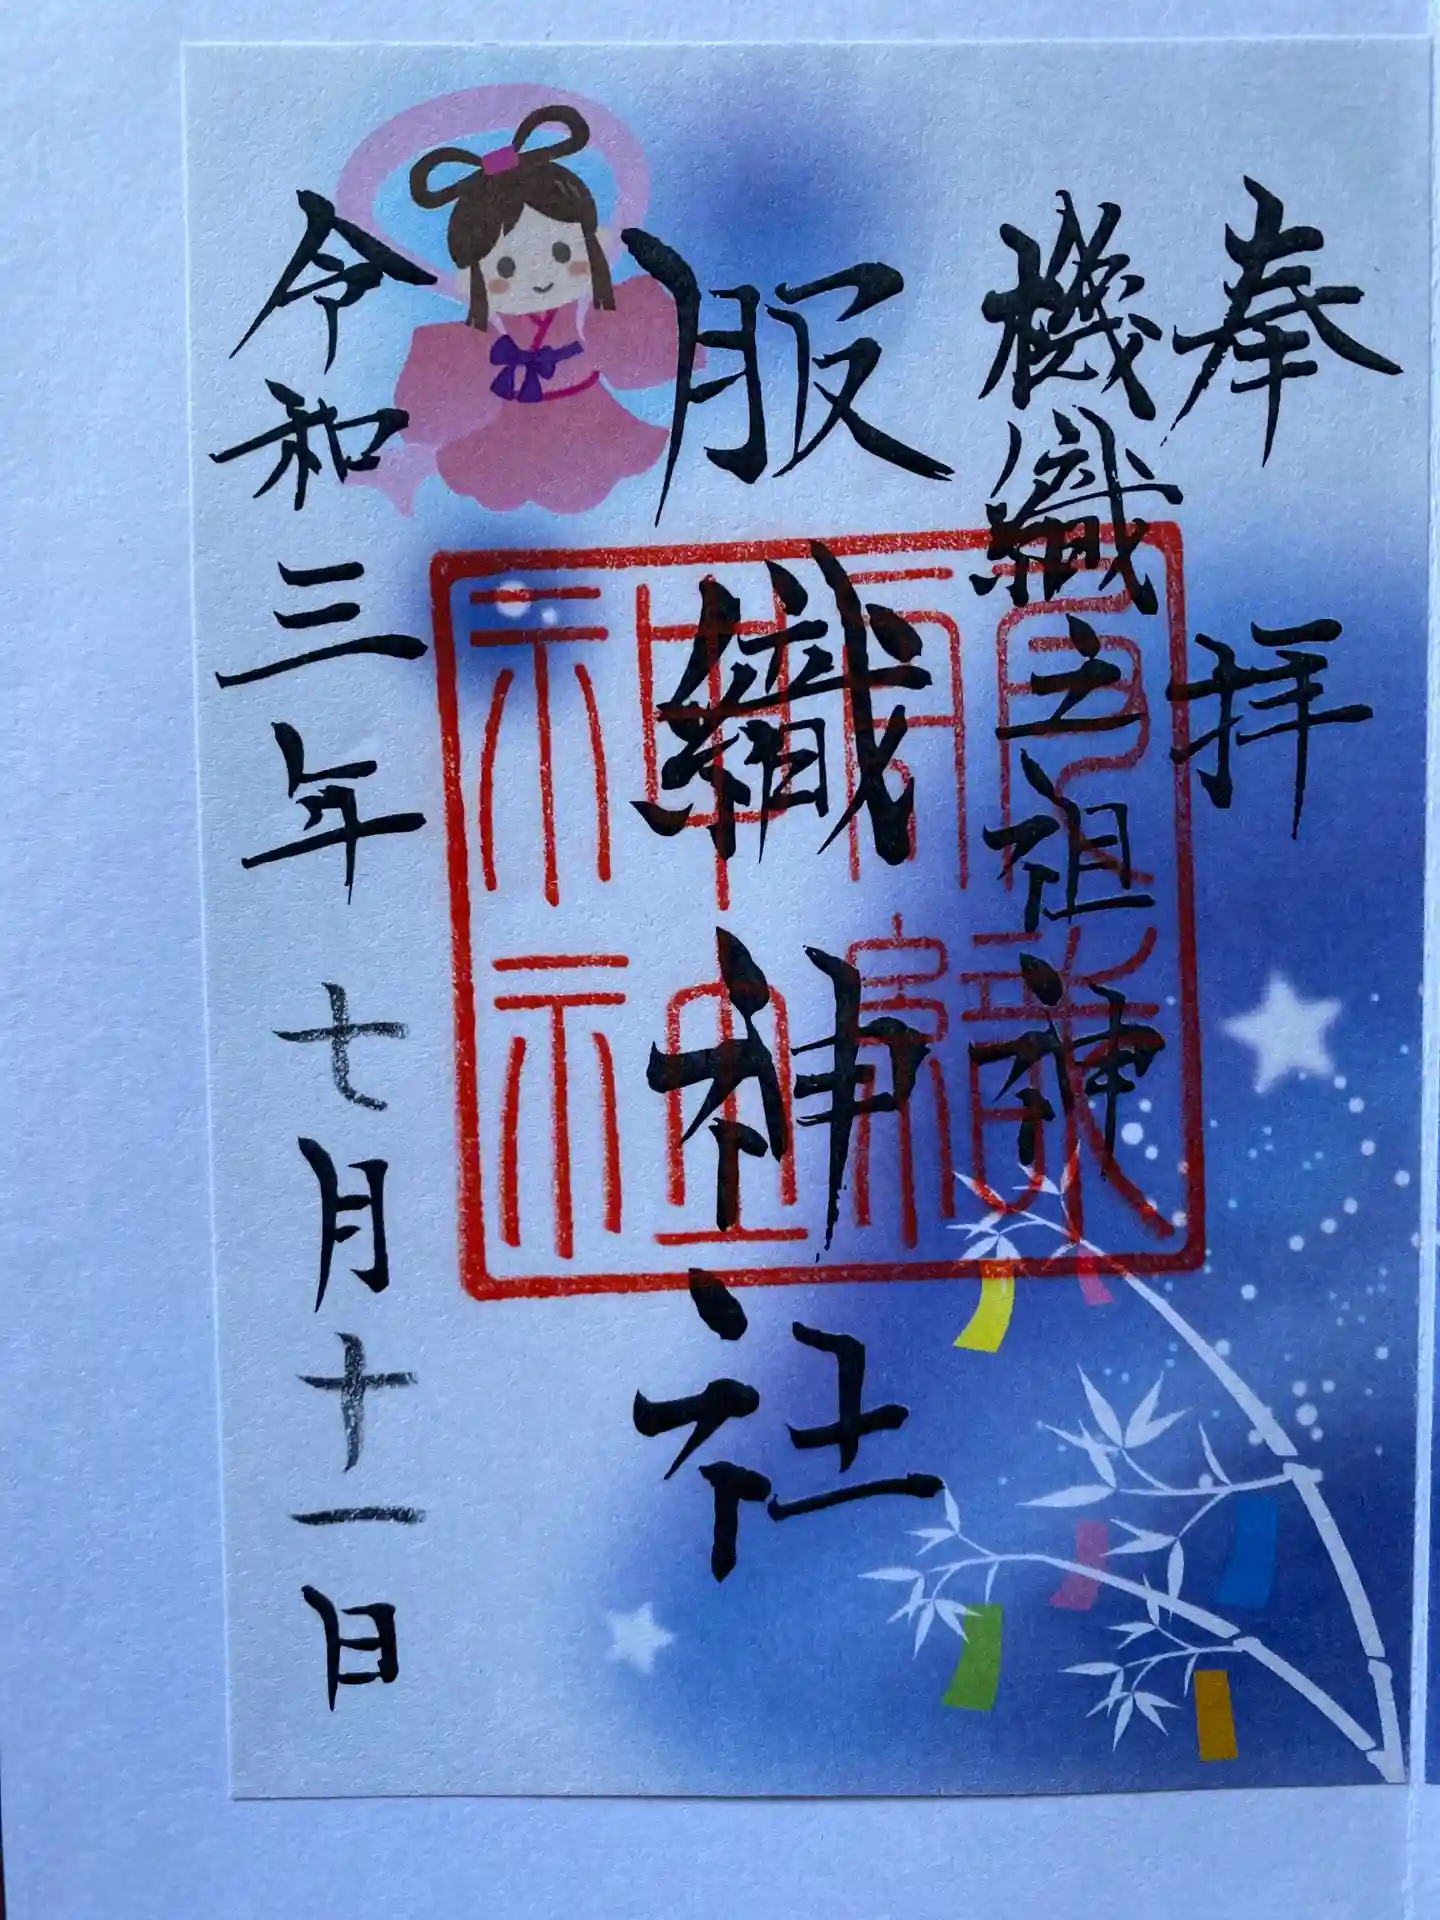 奉拝
機織之祖神
服織神社
服織神社
令和三年七月十一日